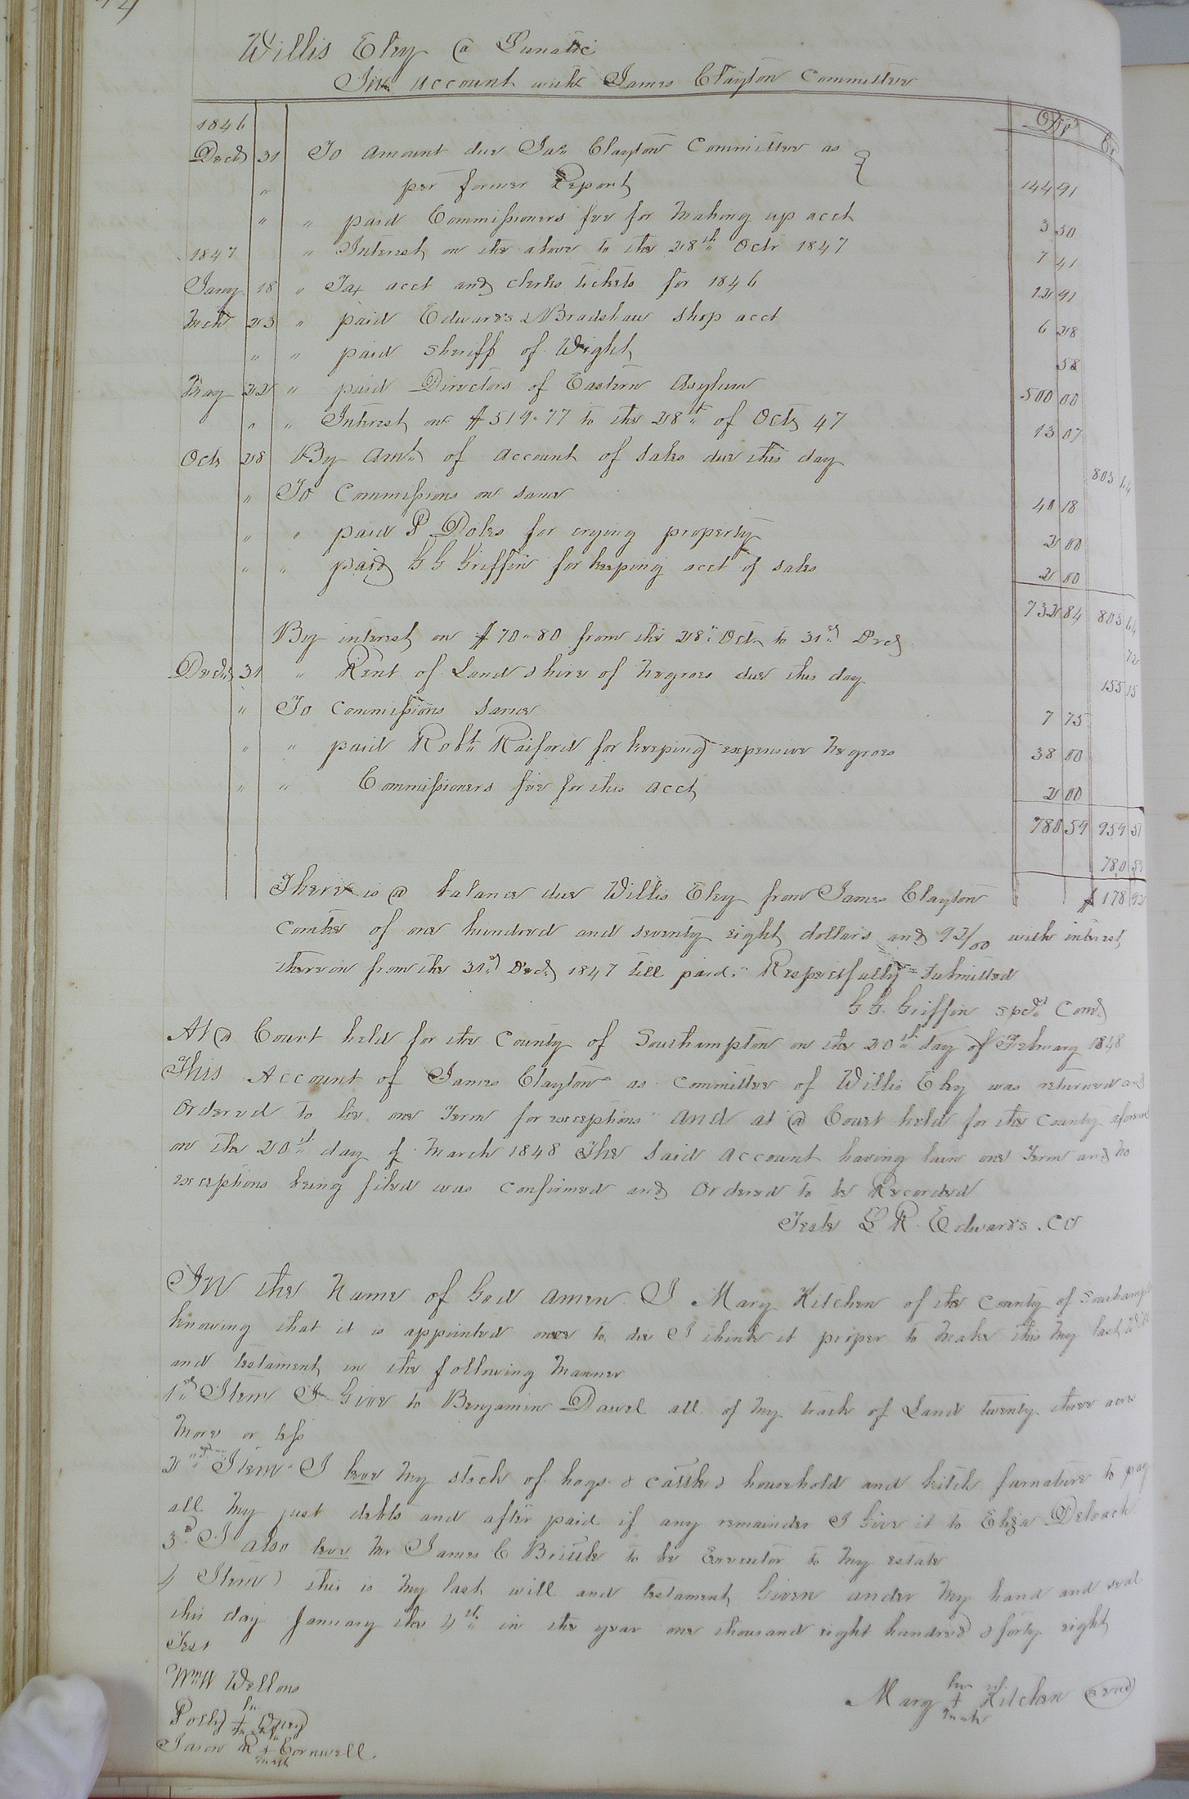 Willis Eley a Lunatic
In account with James Clayton Committee
Drs Cr
1846
Decr 31 To Amount due Jas Clayton Committee as
" per former Report 144 91
" " paid Commissioners fee for making up acct 3 50
1847 " Interest on the above to the 28th Octr 1847 7 41
Jany 18 " Tax acct and clerks tickets for 1846 12 91
Mch 23 " paid Edwards & Bradshaw Shop acct 6 28
" " paid Sheriff of Wight 58
May 22 " paid Directors of Eastern Asylum 500 00
" " Interest on $519.77 to the 28th of Octr 47 13 07
Octr 28 By Amt of account of sales due this day 803 64
" To Commissions on same 40 18
" " paid P Doles for crying property 2 00
" " paid G G Griffin for keeping acct of sales 2 00
732 84 803 64
By interest on $70.80 from the 28th Octr to 31st Decr 72
Decr 31 " Rent of Land & hire of Negroes due this day 155 15
" To Commissions same 7 75
" " paid Robt Raiford for keeping expensive Negroes 38 00
" " Commissioners fee for this acct 2 00
780 59 959 51
780 59
There is a balance due Willis Eley from James Clayton $ 178 92
Comtee of one hundred and seventy eight dollars and 92/00 with interest
thereon from the 31st Decr 1847 till paid. Respectfully Submitted
G G. Griffin Spcl Comr
At a Court held for the County of Southampton on the 20th day of February 1848
This Account of James Clayton as committee of Willis Eley was returned and
Ordered to lie one Term for exceptions And at a Court held for the County aforesd
on the 20th day of March 1848 The Said Account having lain one Term and No
exceptions being filed was Confirmed and Ordered to be Recorded
Teste L R Edwards. CC
In the Name of God Amen. I Mary Kitchen of the County of Southampton
knowing that it is appointed once to die I think it proper to make this my last Will
and testament in the following manner
1st Item I Give to Benjamin Darvel all of my track of Land twenty three acre
more or less
2nd Item I leve my stock of hogs & cattle & household and kitch furnature to pay
all my just debts and after paid if any remainder I Give it to Eliza Deloach
3d I also leve Mr James C Brittle to be Executor to my estate
4 Item) this is my last will and testament Given under my hand and seal
this day January the 4th in the year one thousand eight hundred & forty eight
Test
Wm W Wellons
her
Mary + Kitchen (seal)
mark
her
Polly +
mark
Jason R + Cornwell.
mark